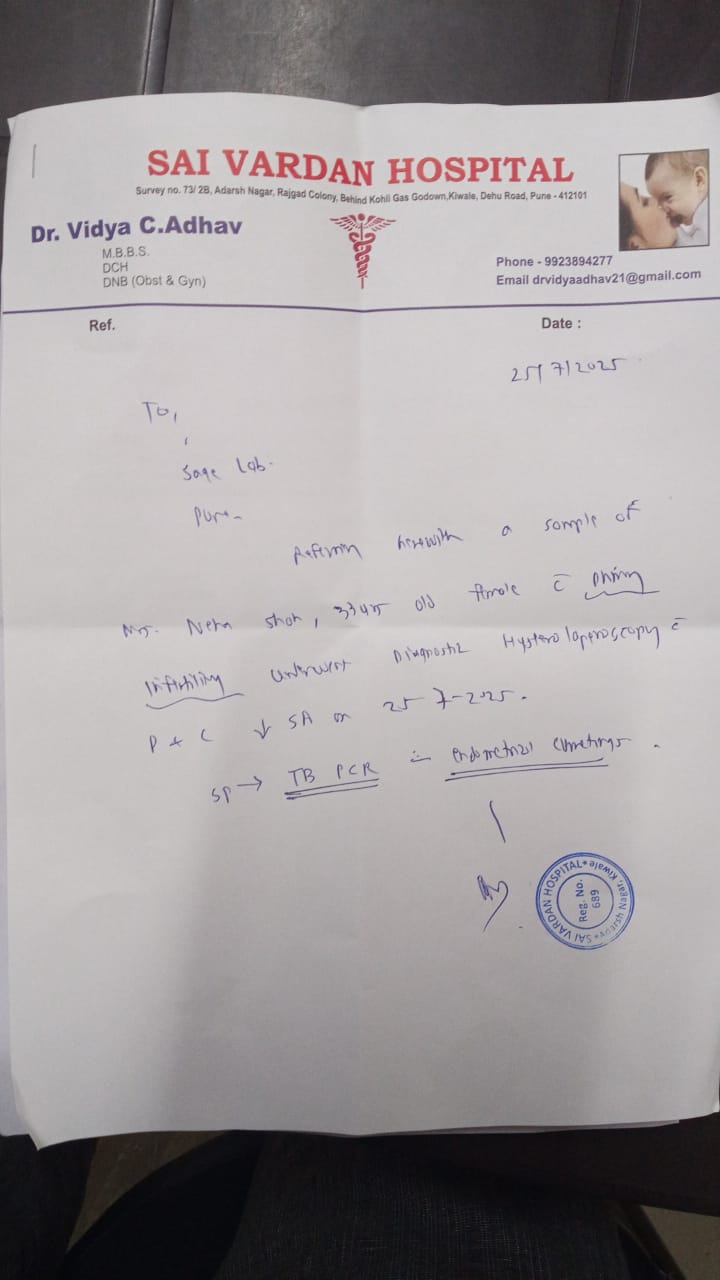 SAI VARDAN HOSPITAL
Survey no. 73/ 2B, Adarsh Nagar, Rajgad Colony, Behind Kohli Gas Godown,Kiwale, Dehu Road, Pune - 412101
Dr. Vidya C.Adhav
M.B.B.S.
DCH
DNB (Obst & Gyn)
Phone - 9923894277
Email drvidyaadhav21@gmail.com
Ref.
Date :
25/7/2025
To,
Sage Lab.
Pune
Referring herewith a sample of
Mrs. Neha 33 yrs old female c̄
infertility underwent Diagnostic Hystero laparoscopy c̄
D & C ↓ SA on 25-7-2025.
SP → TB PCR endometrial curettings.
SAI VARDAN HOSPITAL * Adarsh Nagar, Kiwale *
Reg. No.
689